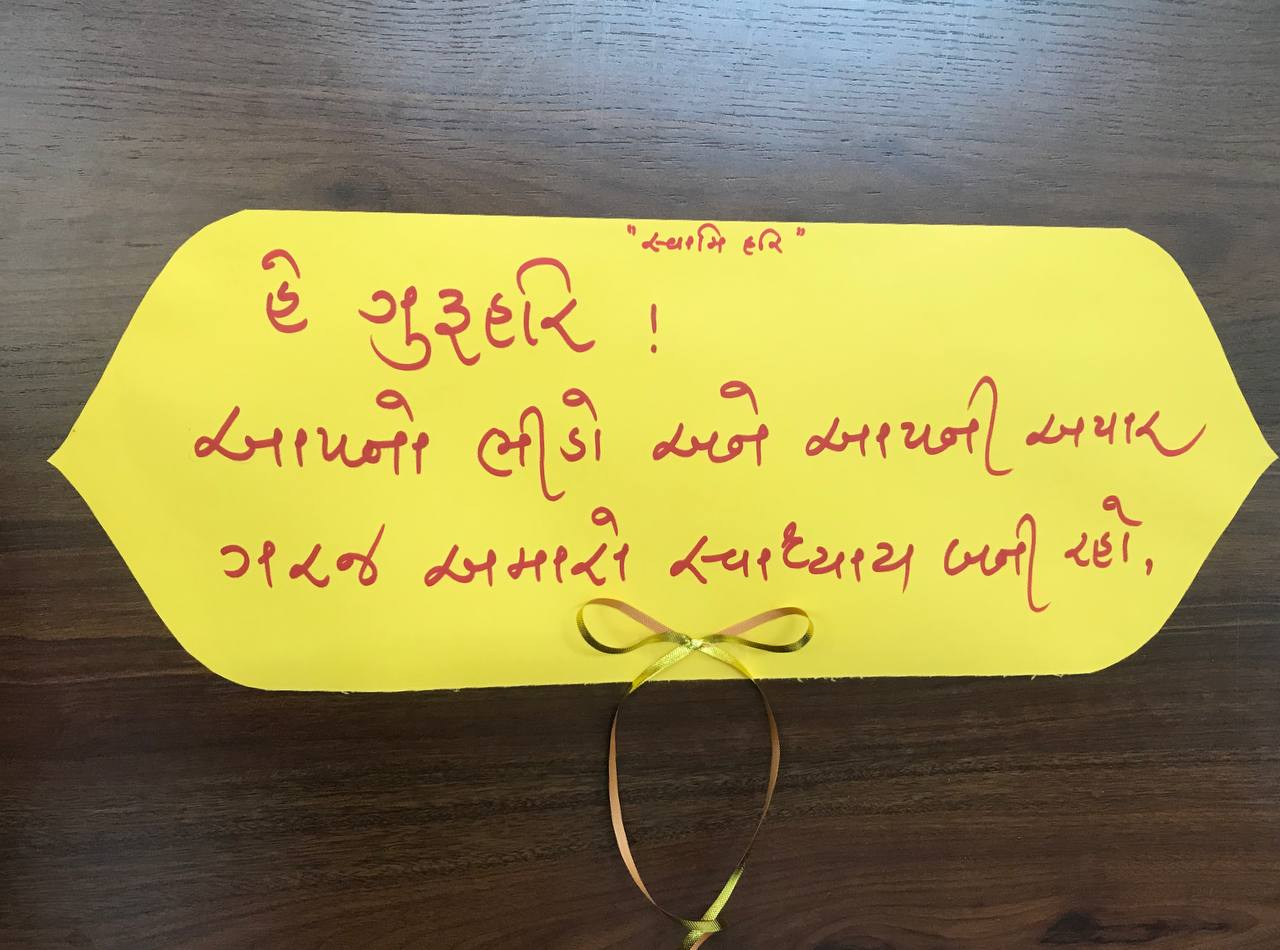 "સ્વામિ હરિ"
હે ગુરૂહરિ !
આપનો ભીડો અને આપની અપાર
ગરજ અમારો સ્વાધ્યાય બની રહો.